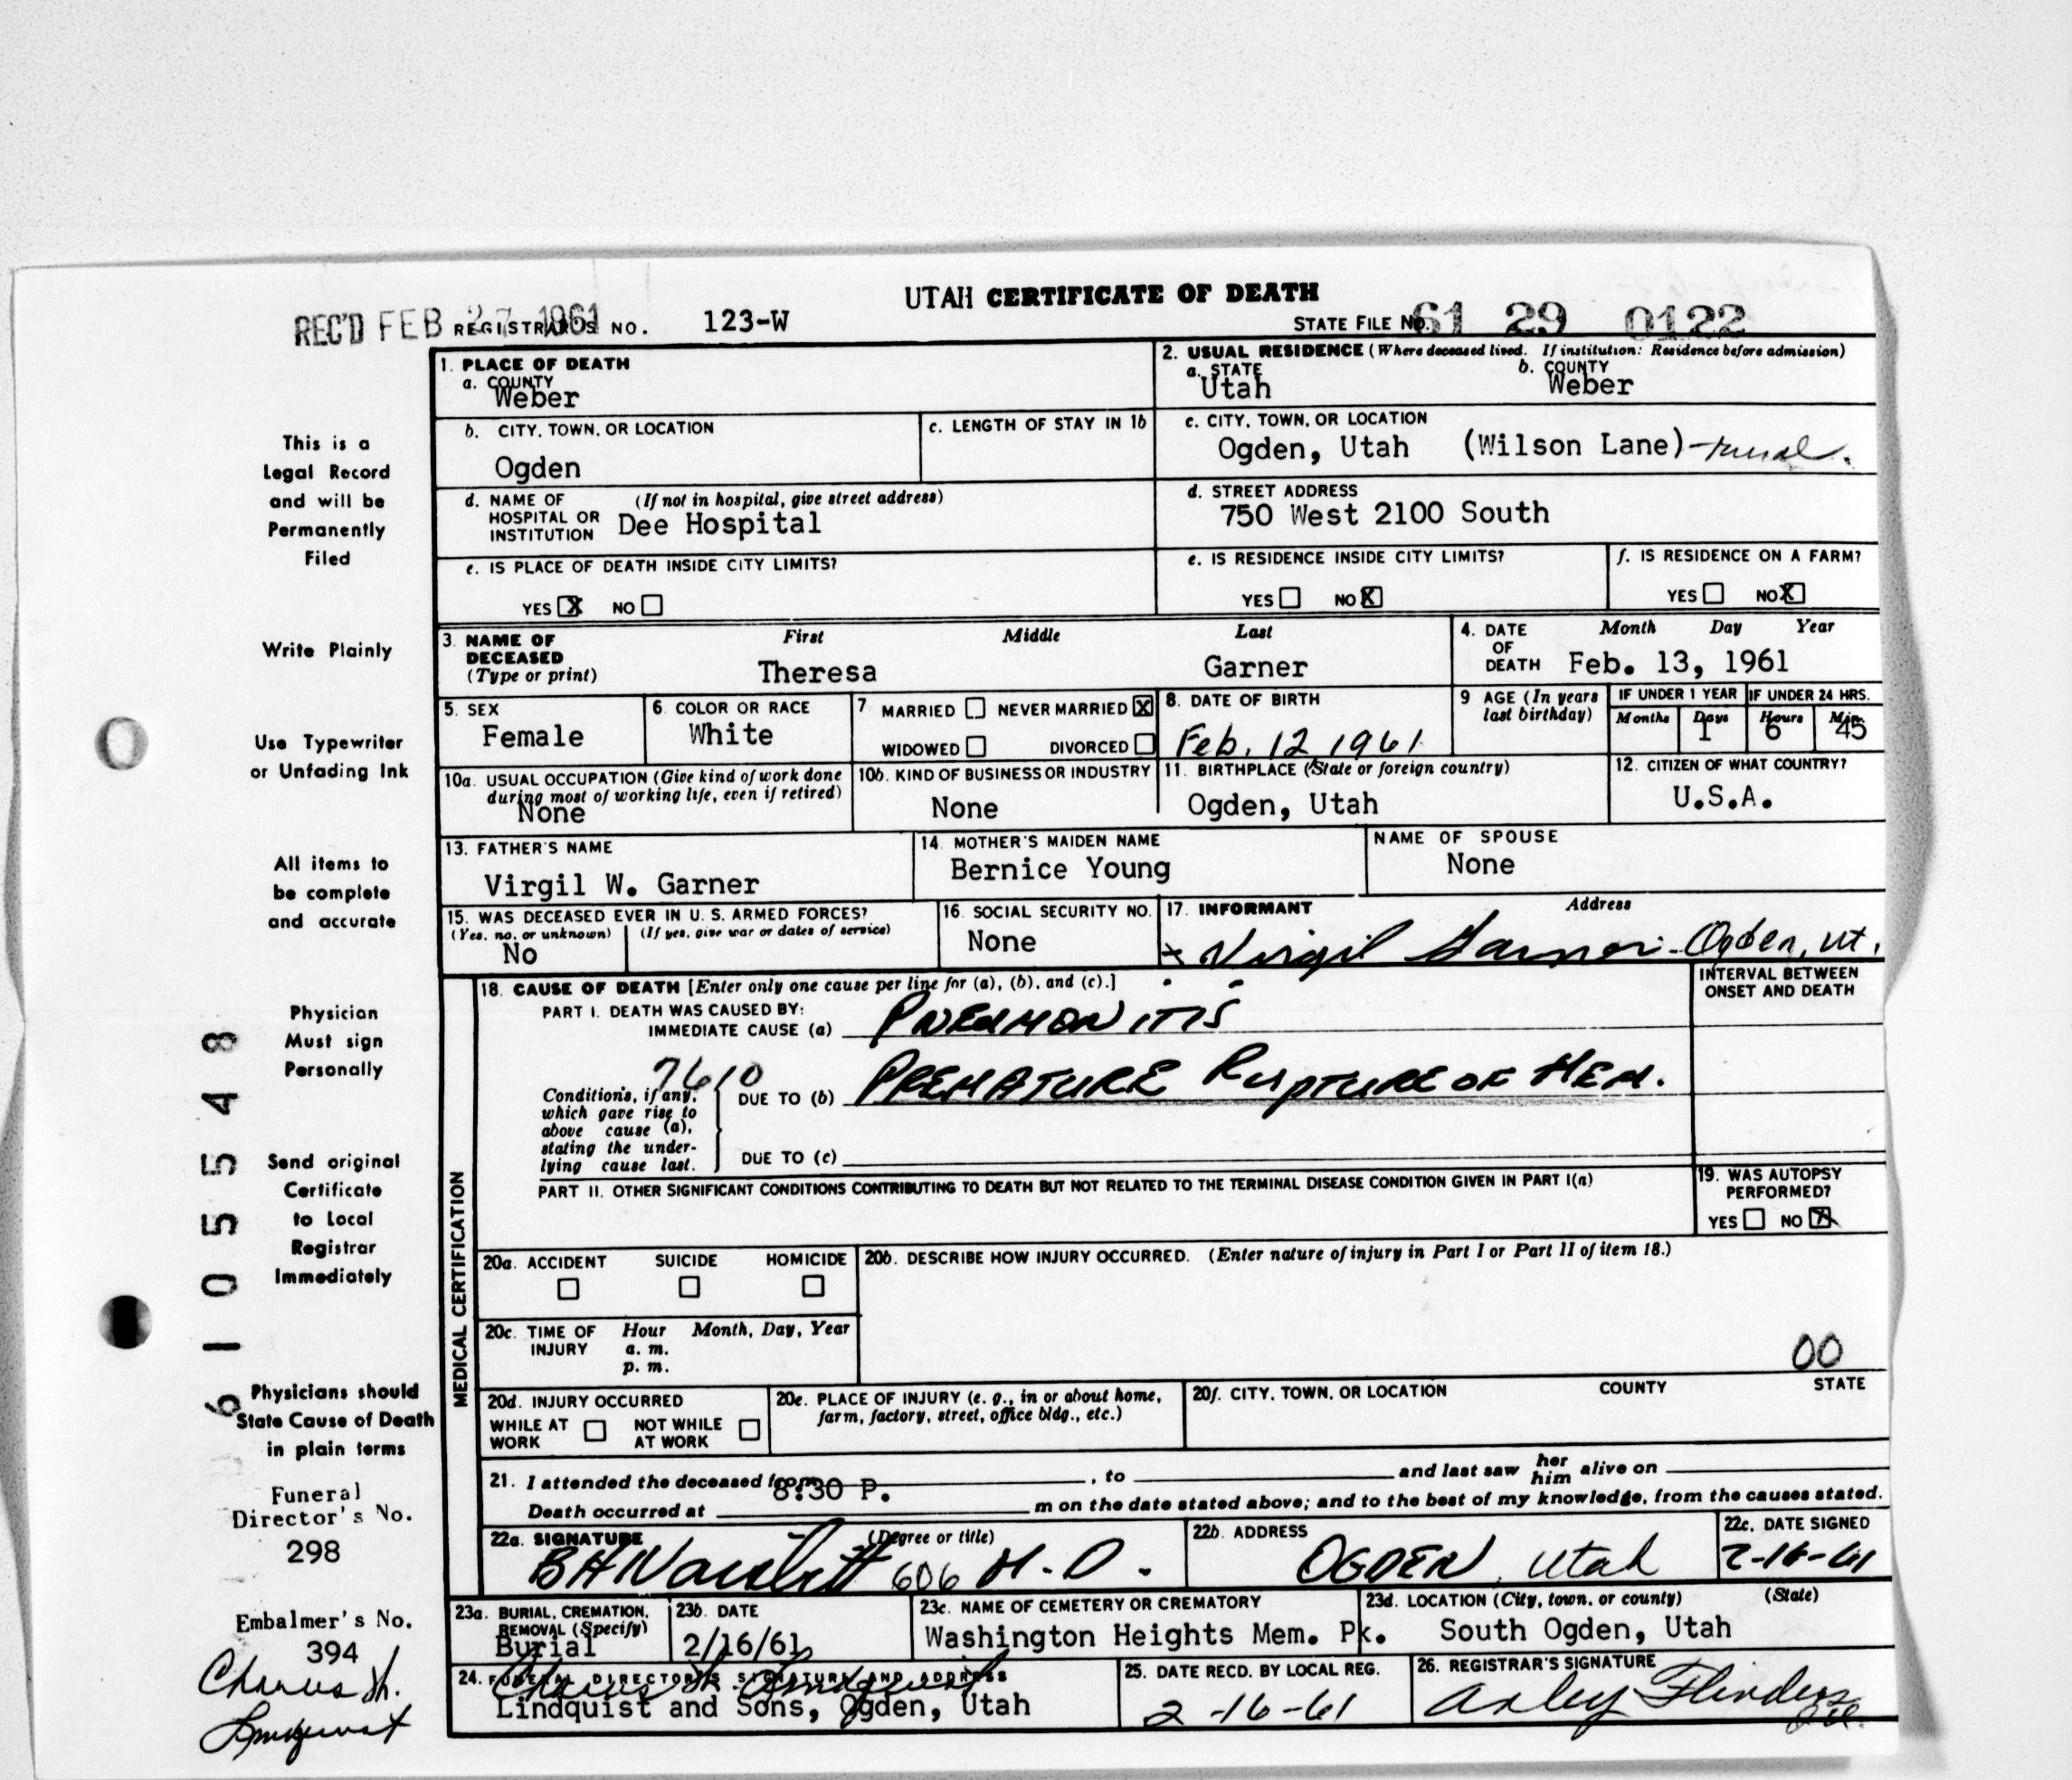 UTAH CERTIFICATE OF DEATH
REC'D FEB 27 1961 REGISTRAR'S NO. 123-W STATE FILE NO. 61 29 0122
1. PLACE OF DEATH
a. COUNTY
Weber
2. USUAL RESIDENCE (Where deceased lived. If institution: Residence before admission)
a. STATE b. COUNTY
Utah Weber
b. CITY, TOWN, OR LOCATION
Ogden
c. LENGTH OF STAY IN 1b
c. CITY, TOWN, OR LOCATION
Ogden, Utah (Wilson Lane) - rural.
d. NAME OF (If not in hospital, give street address)
HOSPITAL OR
INSTITUTION Dee Hospital
d. STREET ADDRESS
750 West 2100 South
e. IS PLACE OF DEATH INSIDE CITY LIMITS?
YES X NO
e. IS RESIDENCE INSIDE CITY LIMITS?
YES NO X
f. IS RESIDENCE ON A FARM?
YES NO X
3. NAME OF First Middle Last
DECEASED
(Type or print) Theresa Garner
4. DATE Month Day Year
OF
DEATH Feb. 13, 1961
5. SEX
Female
6. COLOR OR RACE
White
7 MARRIED NEVER MARRIED X
WIDOWED DIVORCED
8. DATE OF BIRTH
Feb. 12, 1961
9 AGE (In years
last birthday)
IF UNDER 1 YEAR IF UNDER 24 HRS.
Months Days Hours Min.
1 6 45
10a. USUAL OCCUPATION (Give kind of work done
during most of working life, even if retired)
None
10b. KIND OF BUSINESS OR INDUSTRY
None
11. BIRTHPLACE (State or foreign country)
Ogden, Utah
12. CITIZEN OF WHAT COUNTRY?
U.S.A.
13. FATHER'S NAME
Virgil W. Garner
14. MOTHER'S MAIDEN NAME
Bernice Young
NAME OF SPOUSE
None
15. WAS DECEASED EVER IN U. S. ARMED FORCES?
(Yes, no, or unknown) (If yes, give war or dates of service)
No
16. SOCIAL SECURITY NO.
None
17. INFORMANT Address
x Virgil Garner - Ogden, Ut.
MEDICAL CERTIFICATION
18. CAUSE OF DEATH [Enter only one cause per line for (a), (b), and (c).]
INTERVAL BETWEEN
ONSET AND DEATH
PART I. DEATH WAS CAUSED BY:
IMMEDIATE CAUSE (a) PNEUMONITIS
7610
Conditions, if any,
which gave rise to
above cause (a),
stating the under-
lying cause last.
DUE TO (b) PREMATURE RUPTURE OF MEM.
DUE TO (c)
PART II. OTHER SIGNIFICANT CONDITIONS CONTRIBUTING TO DEATH BUT NOT RELATED TO THE TERMINAL DISEASE CONDITION GIVEN IN PART I(a)
19. WAS AUTOPSY
PERFORMED?
YES NO X
20a. ACCIDENT SUICIDE HOMICIDE
20b. DESCRIBE HOW INJURY OCCURRED. (Enter nature of injury in Part I or Part II of item 18.)
20c. TIME OF Hour Month, Day, Year
INJURY a. m.
p. m.
00
20d. INJURY OCCURRED
WHILE AT NOT WHILE
WORK AT WORK
20e. PLACE OF INJURY (e. g., in or about home,
farm, factory, street, office bldg., etc.)
20f. CITY, TOWN, OR LOCATION COUNTY STATE
21. I attended the deceased from , to and last saw her him alive on
8:30 P.
Death occurred at m on the date stated above; and to the best of my knowledge, from the causes stated.
22a. SIGNATURE (Degree or title)
606 M.D.
22b. ADDRESS
OGDEN, Utah
22c. DATE SIGNED
2-16-61
23a. BURIAL, CREMATION,
REMOVAL (Specify)
Burial
23b. DATE
2/16/61
23c. NAME OF CEMETERY OR CREMATORY
Washington Heights Mem. Pk.
23d. LOCATION (City, town, or county) (State)
South Ogden, Utah
24. FUNERAL DIRECTOR'S SIGNATURE AND ADDRESS
Lindquist and Sons, Ogden, Utah
25. DATE RECD. BY LOCAL REG.
2-16-61
26. REGISTRAR'S SIGNATURE
Arley Flinders
This is a
Legal Record
and will be
Permanently
Filed
Write Plainly
Use Typewriter
or Unfading Ink
All items to
be complete
and accurate
Physician
Must sign
Personally
Send original
Certificate
to Local
Registrar
Immediately
Physicians should
State Cause of Death
in plain terms
Funeral
Director's No.
298
Embalmer's No.
394
Charles H.
Lindquist
61 0 5 5 4 8